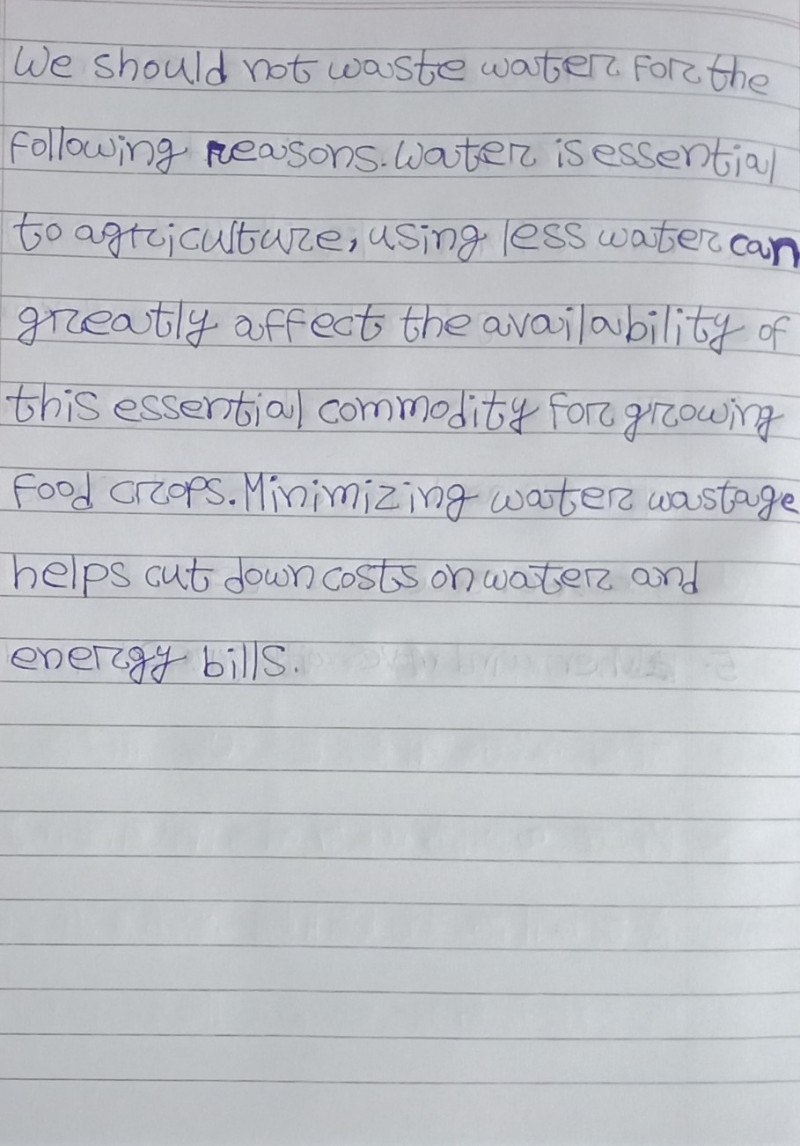 We should not waste water for the
following reasons. Water is essential
to agriculture, using less water can
greatly affect the availability of
this essential commodity for growing
food crops. Minimizing water wastage
helps cut down costs on water and
energy bills.